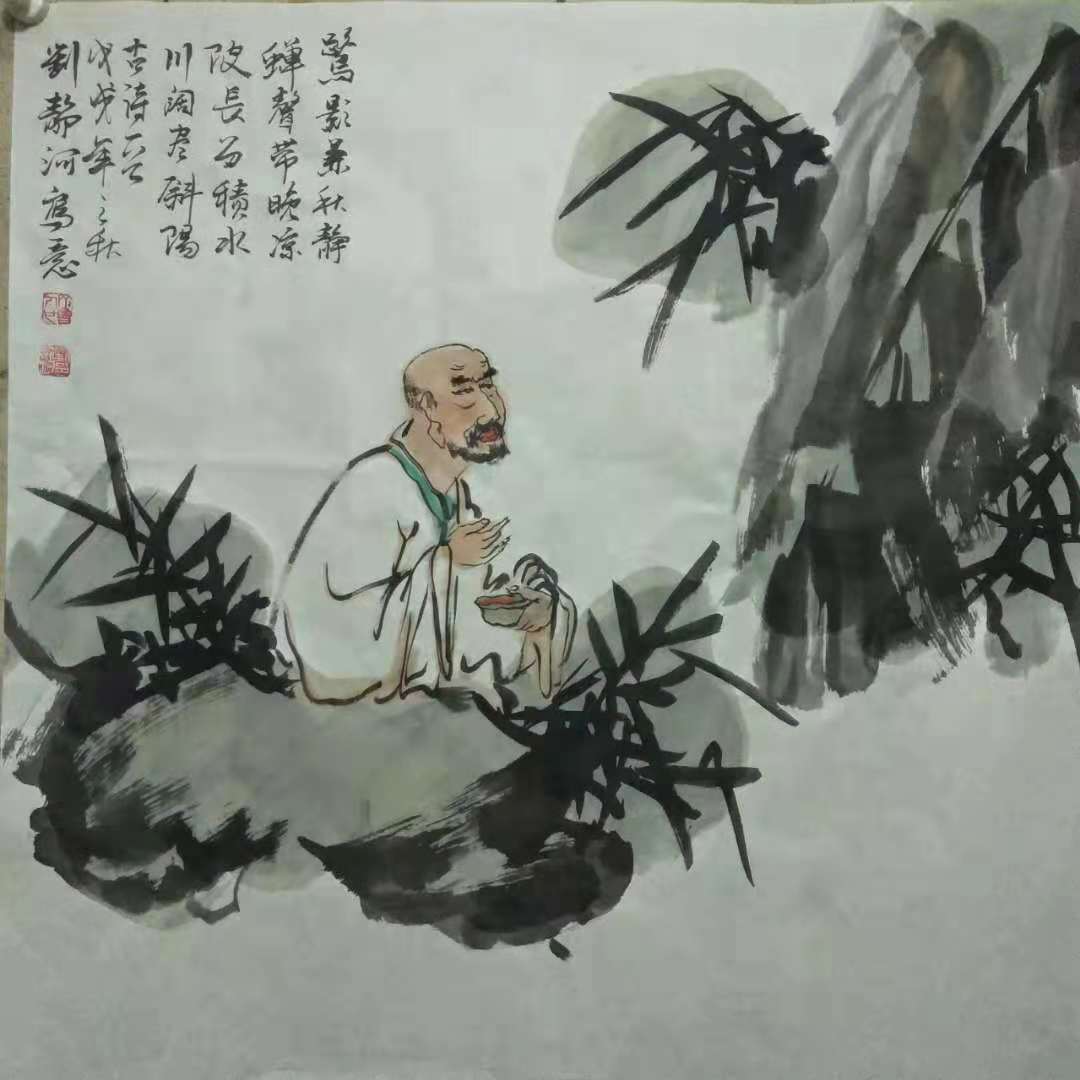 鷺影兼秋靜
蟬聲带晚凉
陂長留積水
川阔尽斜陽
古詩一首
戊戌年之秋
劉静河寫意